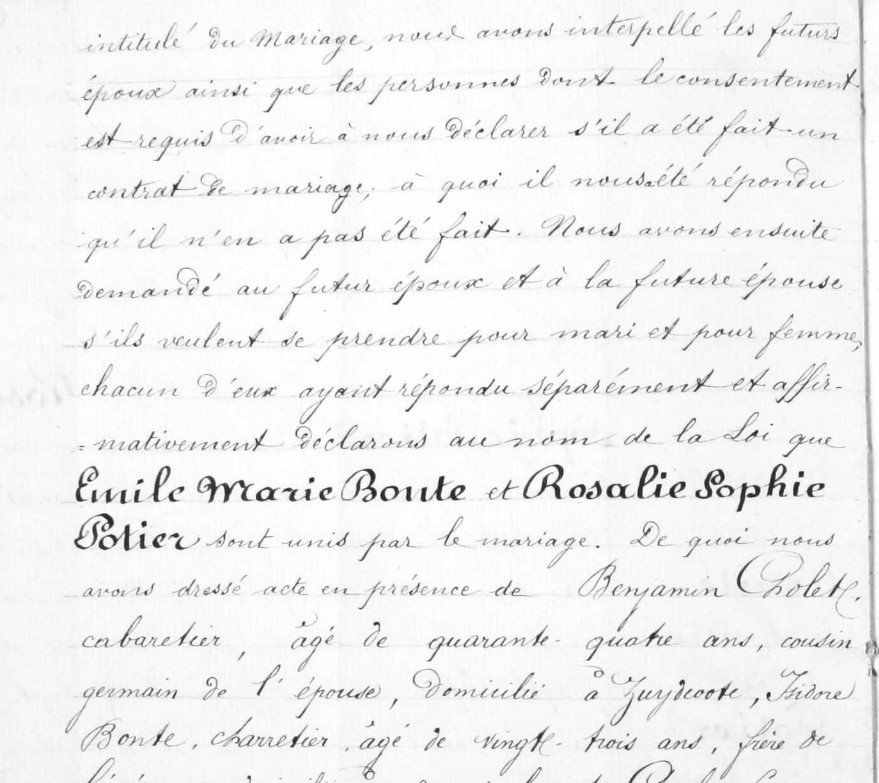 intitulé du Mariage, nous avons interpellé les futurs
époux ainsi que les personnes dont le consentement
est requis d'avoir à nous déclarer s'il a été fait un
contrat de mariage; à quoi il nous a été répondu
qu'il n'en a pas été fait. Nous avons ensuite
demandé au futur époux et à la future épouse
s'ils veulent se prendre pour mari et pour femme,
chacun d'eux ayant répondu séparément et affir-
=mativement déclarons au nom de la Loi que
Emile Marie Bonte et Rosalie Sophie
Potier sont unis par le mariage. De quoi nous
avons dressé acte en présence de Benjamin
cabaretier, âgé de quarante-quatre ans, cousin
germain de l'épouse, domicilié à Zuydcoote, Isidore
Bonte, charretier, âgé de vingt-trois ans, frère de